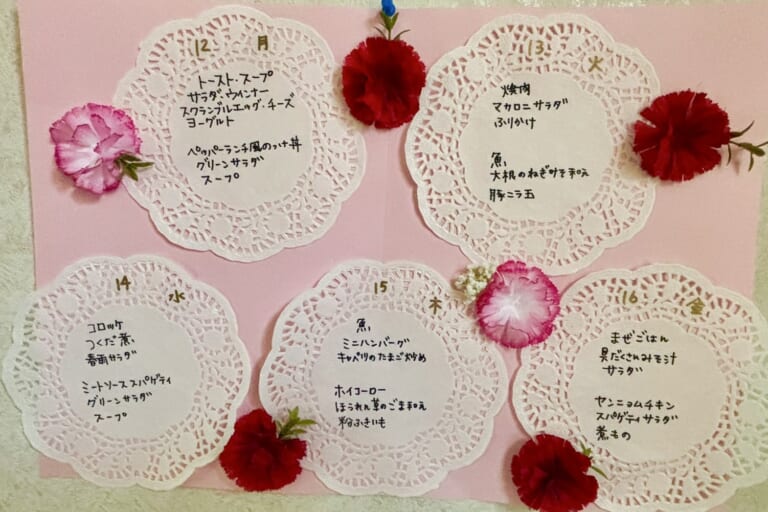 12 月
トースト・スープ
サラダ・ウインナー
スクランブルエッグ・チーズ
ヨーグルト
ペッパーランチ風のっけ丼
グリーンサラダ
スープ
13 火
焼肉
マカロニサラダ
ふりかけ
魚
大根のねぎみそ和え
豚ニラ玉
14 水
コロッケ
つくだ煮
春雨サラダ
ミートソーススパゲティ
グリーンサラダ
スープ
15 木
魚
ミニハンバーグ
キャベツのたまご炒め
ホイコーロー
ほうれん草のごま和え
粉ふきいも
16 金
まぜごはん
具だくさんみそ汁
サラダ
ヤンニョムチキン
スパゲティサラダ
煮もの